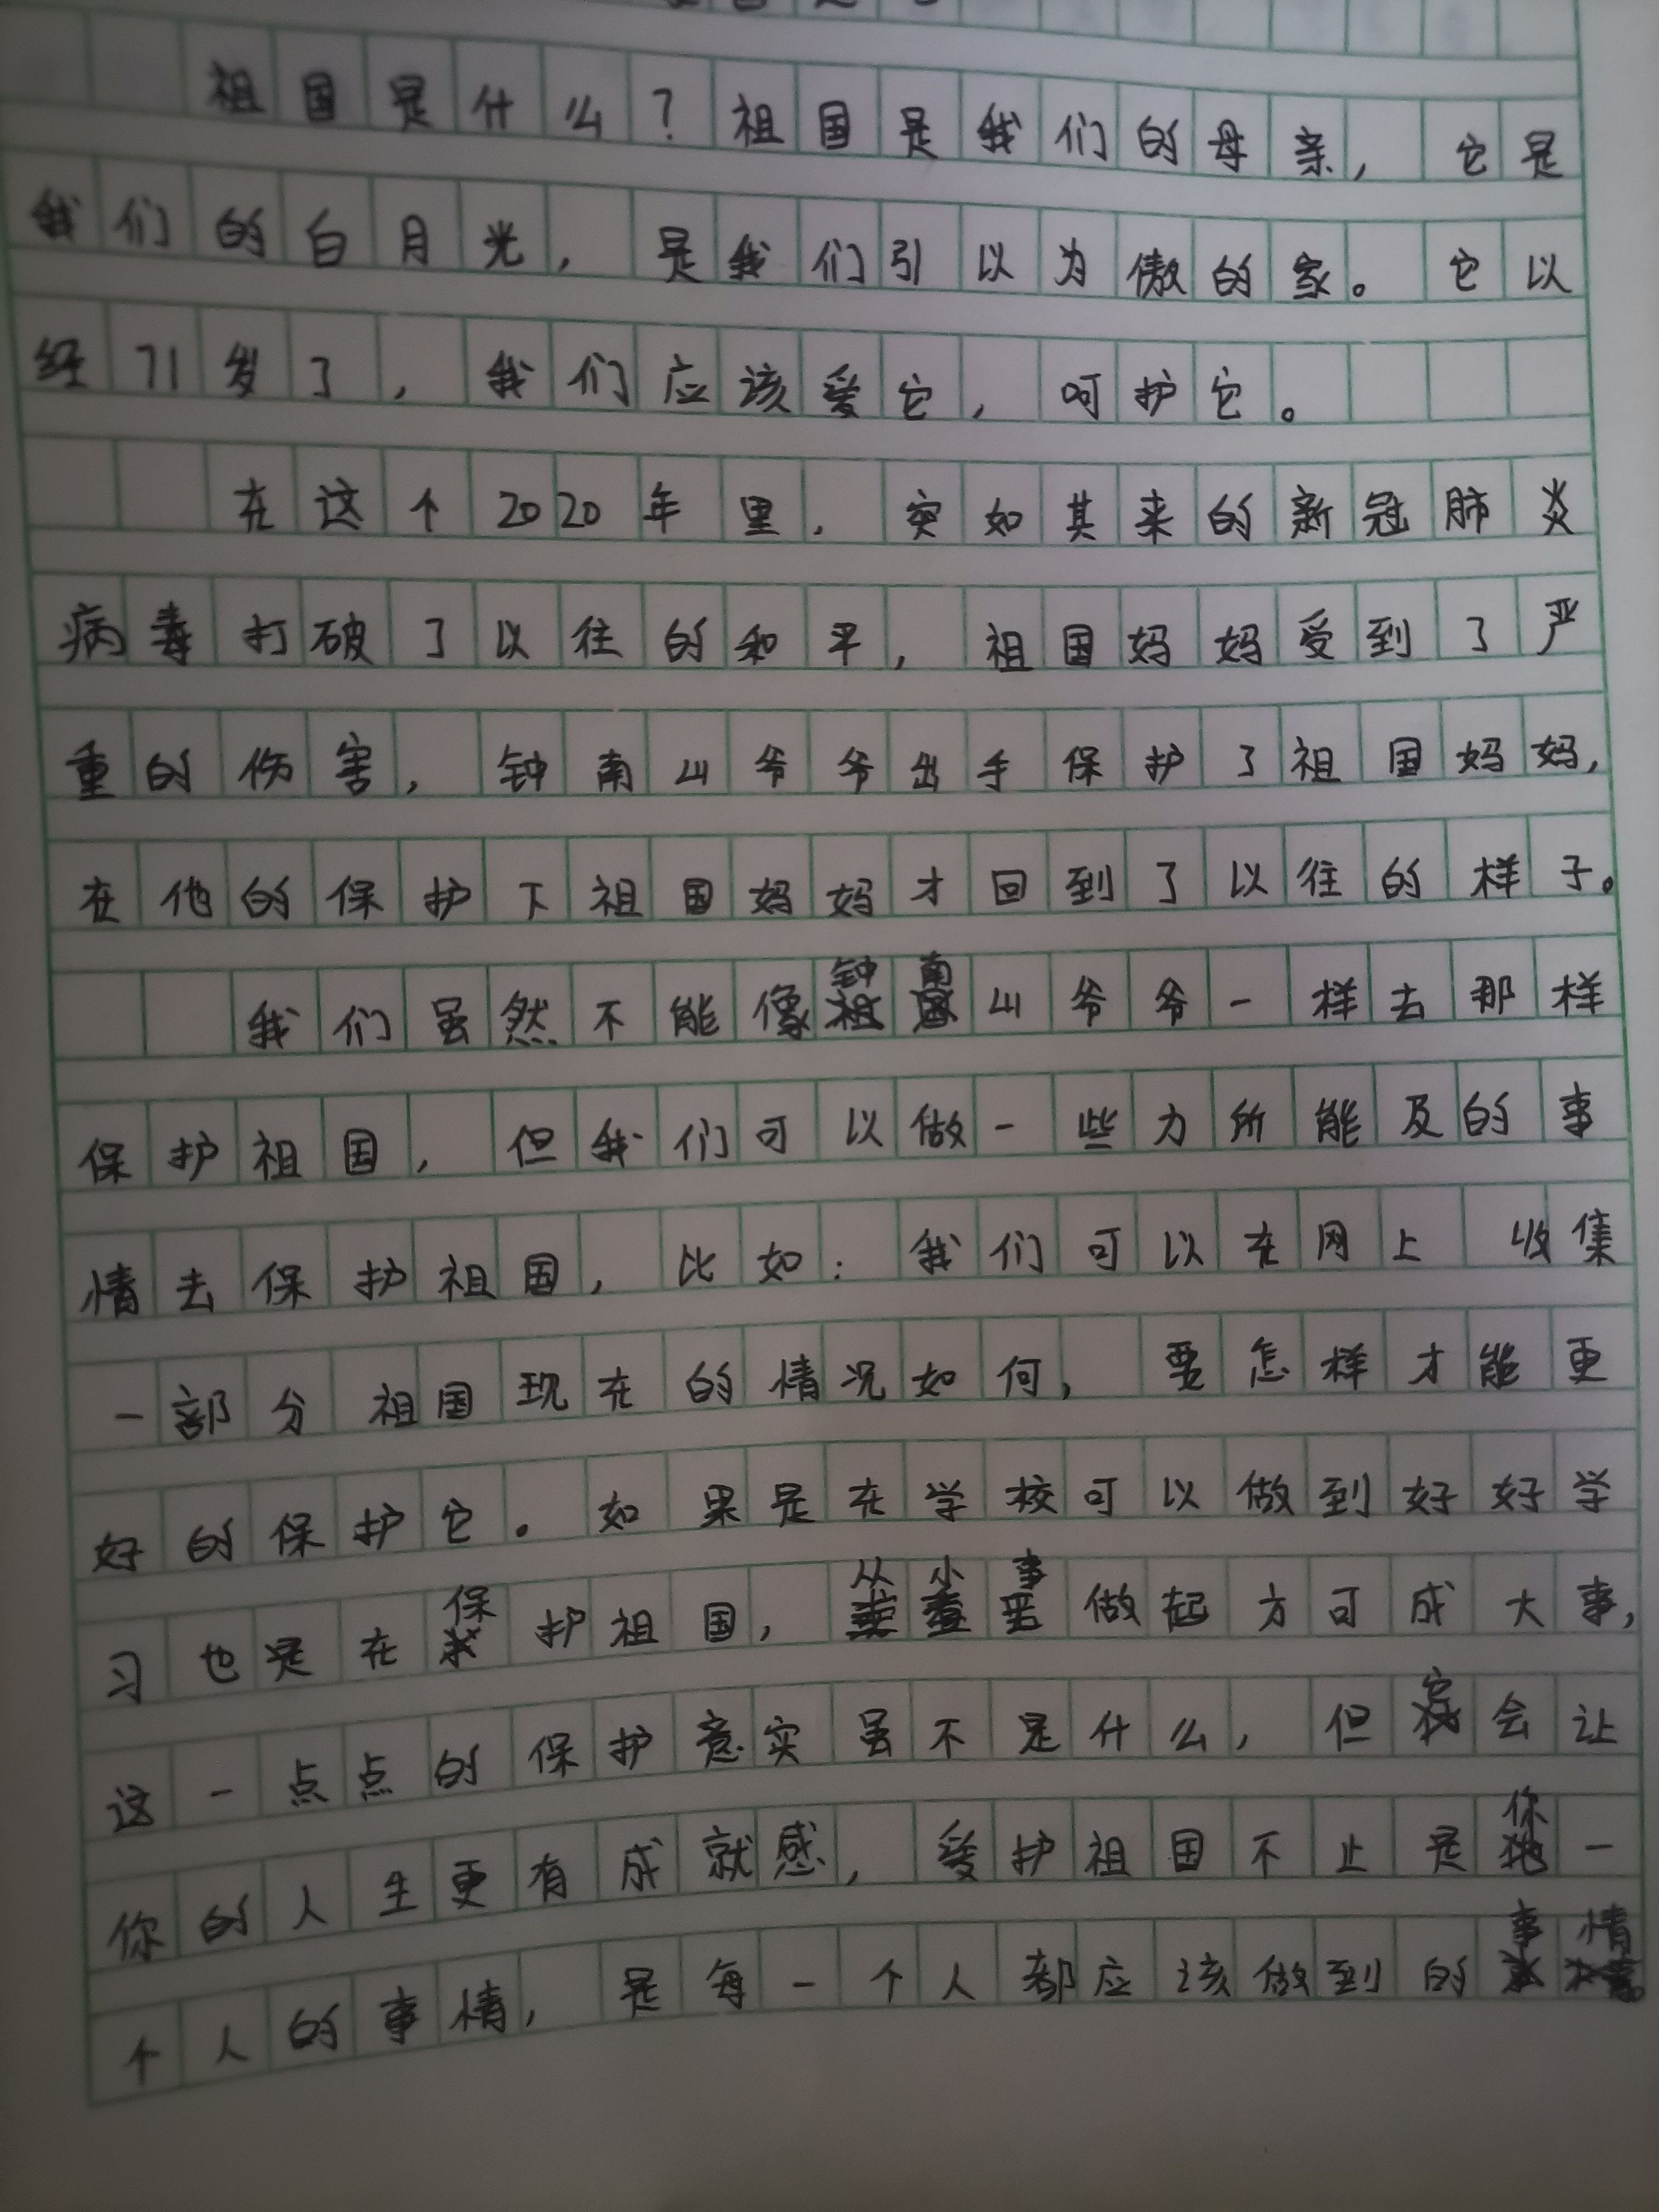 祖国是什么？祖国是我们的母亲，它是
我们的白月光，是我们引以为傲的家。它以
经71岁了，我们应该爱它，呵护它。
在这个2020年里，突如其来的新冠肺炎
病毒打破了以往的和平，祖国妈妈受到了严
重的伤害，钟南山爷爷出手保护了祖国妈妈，
在他的保护下祖国妈妈才回到了以往的样子。
我们虽然不能像钟南山爷爷一样去那样
保护祖国，但我们可以做一些力所能及的事
情去保护祖国，比如：我们可以在网上收集
一部分祖国现在的情况如何，要怎样才能更
好的保护它。如果是在学校可以做到好好学
习也是在保护祖国，从小事做起方可成大事，
这一点点的保护意实虽不是什么，但它会让
你的人生更有成就感，爱护祖国不止是你一
个人的事情，是每一个人都应该做到的事情。